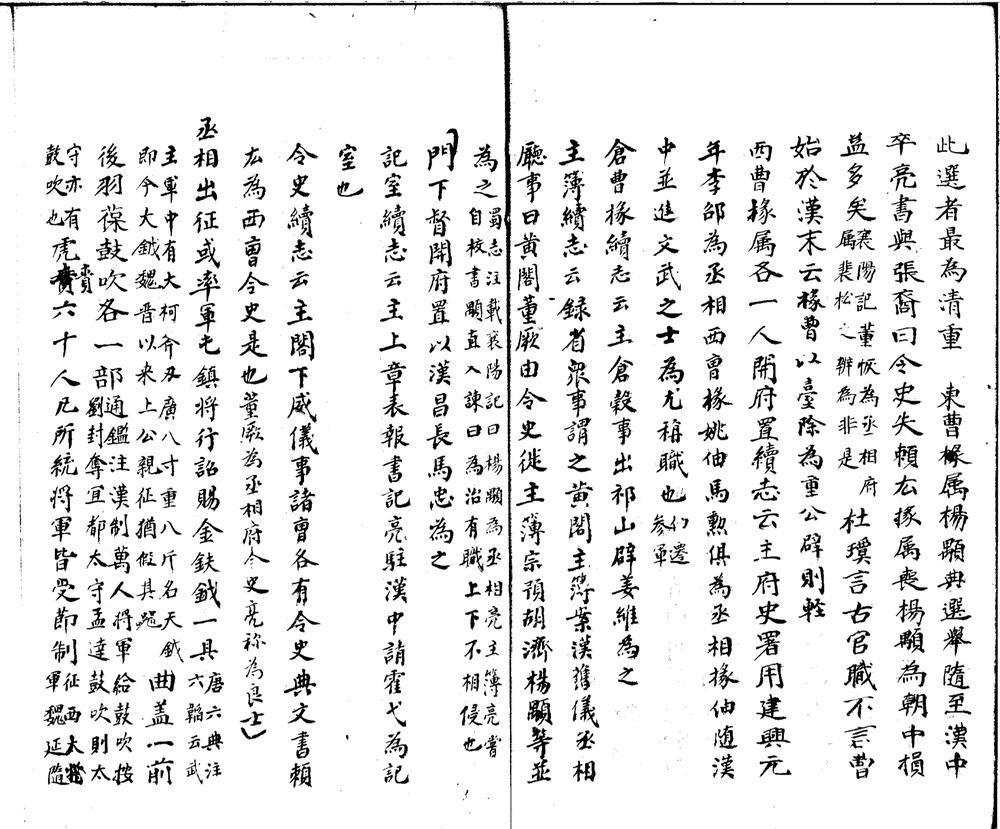 此選者最為清重　東曹掾属楊顒典選舉隨至漢中
卒亮書與張裔曰令史失賴厷掾属喪楊顒為朝中損
益多矣襄陽記董恢為丞相府属裴松之辨為非是杜璞言古官職不言曹
始於漢末云掾曹以臺除為重公辟則輕
西曹掾属各一人開府置續志云主府史署用建興元
年李邵為丞相西曹掾姚伷馬勲俱為丞相掾伷随漢
中並進文武之士為尤稱職也仍遷参軍
倉曹掾續志云主倉穀事出祁山辟姜維為之
主簿續志云録省衆事謂之黄閤主簿案漢舊儀丞相
廳事曰黄閤董厥由令史徙主簿宗預胡濟楊顒等並
為之蜀志注載襄陽記曰楊顒為丞相亮主簿亮嘗自校書顒直入諫曰為治有職上下不相侵也
門下督開府置以漢昌長馬忠為之
記室續志云主上章表報書記亮駐漢中請霍弋為記
室也
令史續志云主閤下威儀事諸曹各有令史典文書賴
厷為西曹令史是也董厥為丞相府令史亮称為良士
丞相出征或率軍屯鎮将行詔賜金鈇鉞一具唐六典注六韜云武
主軍中有大柯斧刃廣八寸重八斤名天鉞即今大鉞魏晋以来上公親征猶假其曲盖一前
後羽葆鼓吹各一部通鑑注漢制萬人将軍給鼓吹按劉封奪宜都太守孟達鼓吹則太
守亦有鼓吹也虎賁六十人凡所統将軍皆受節制征西大将軍魏延隨